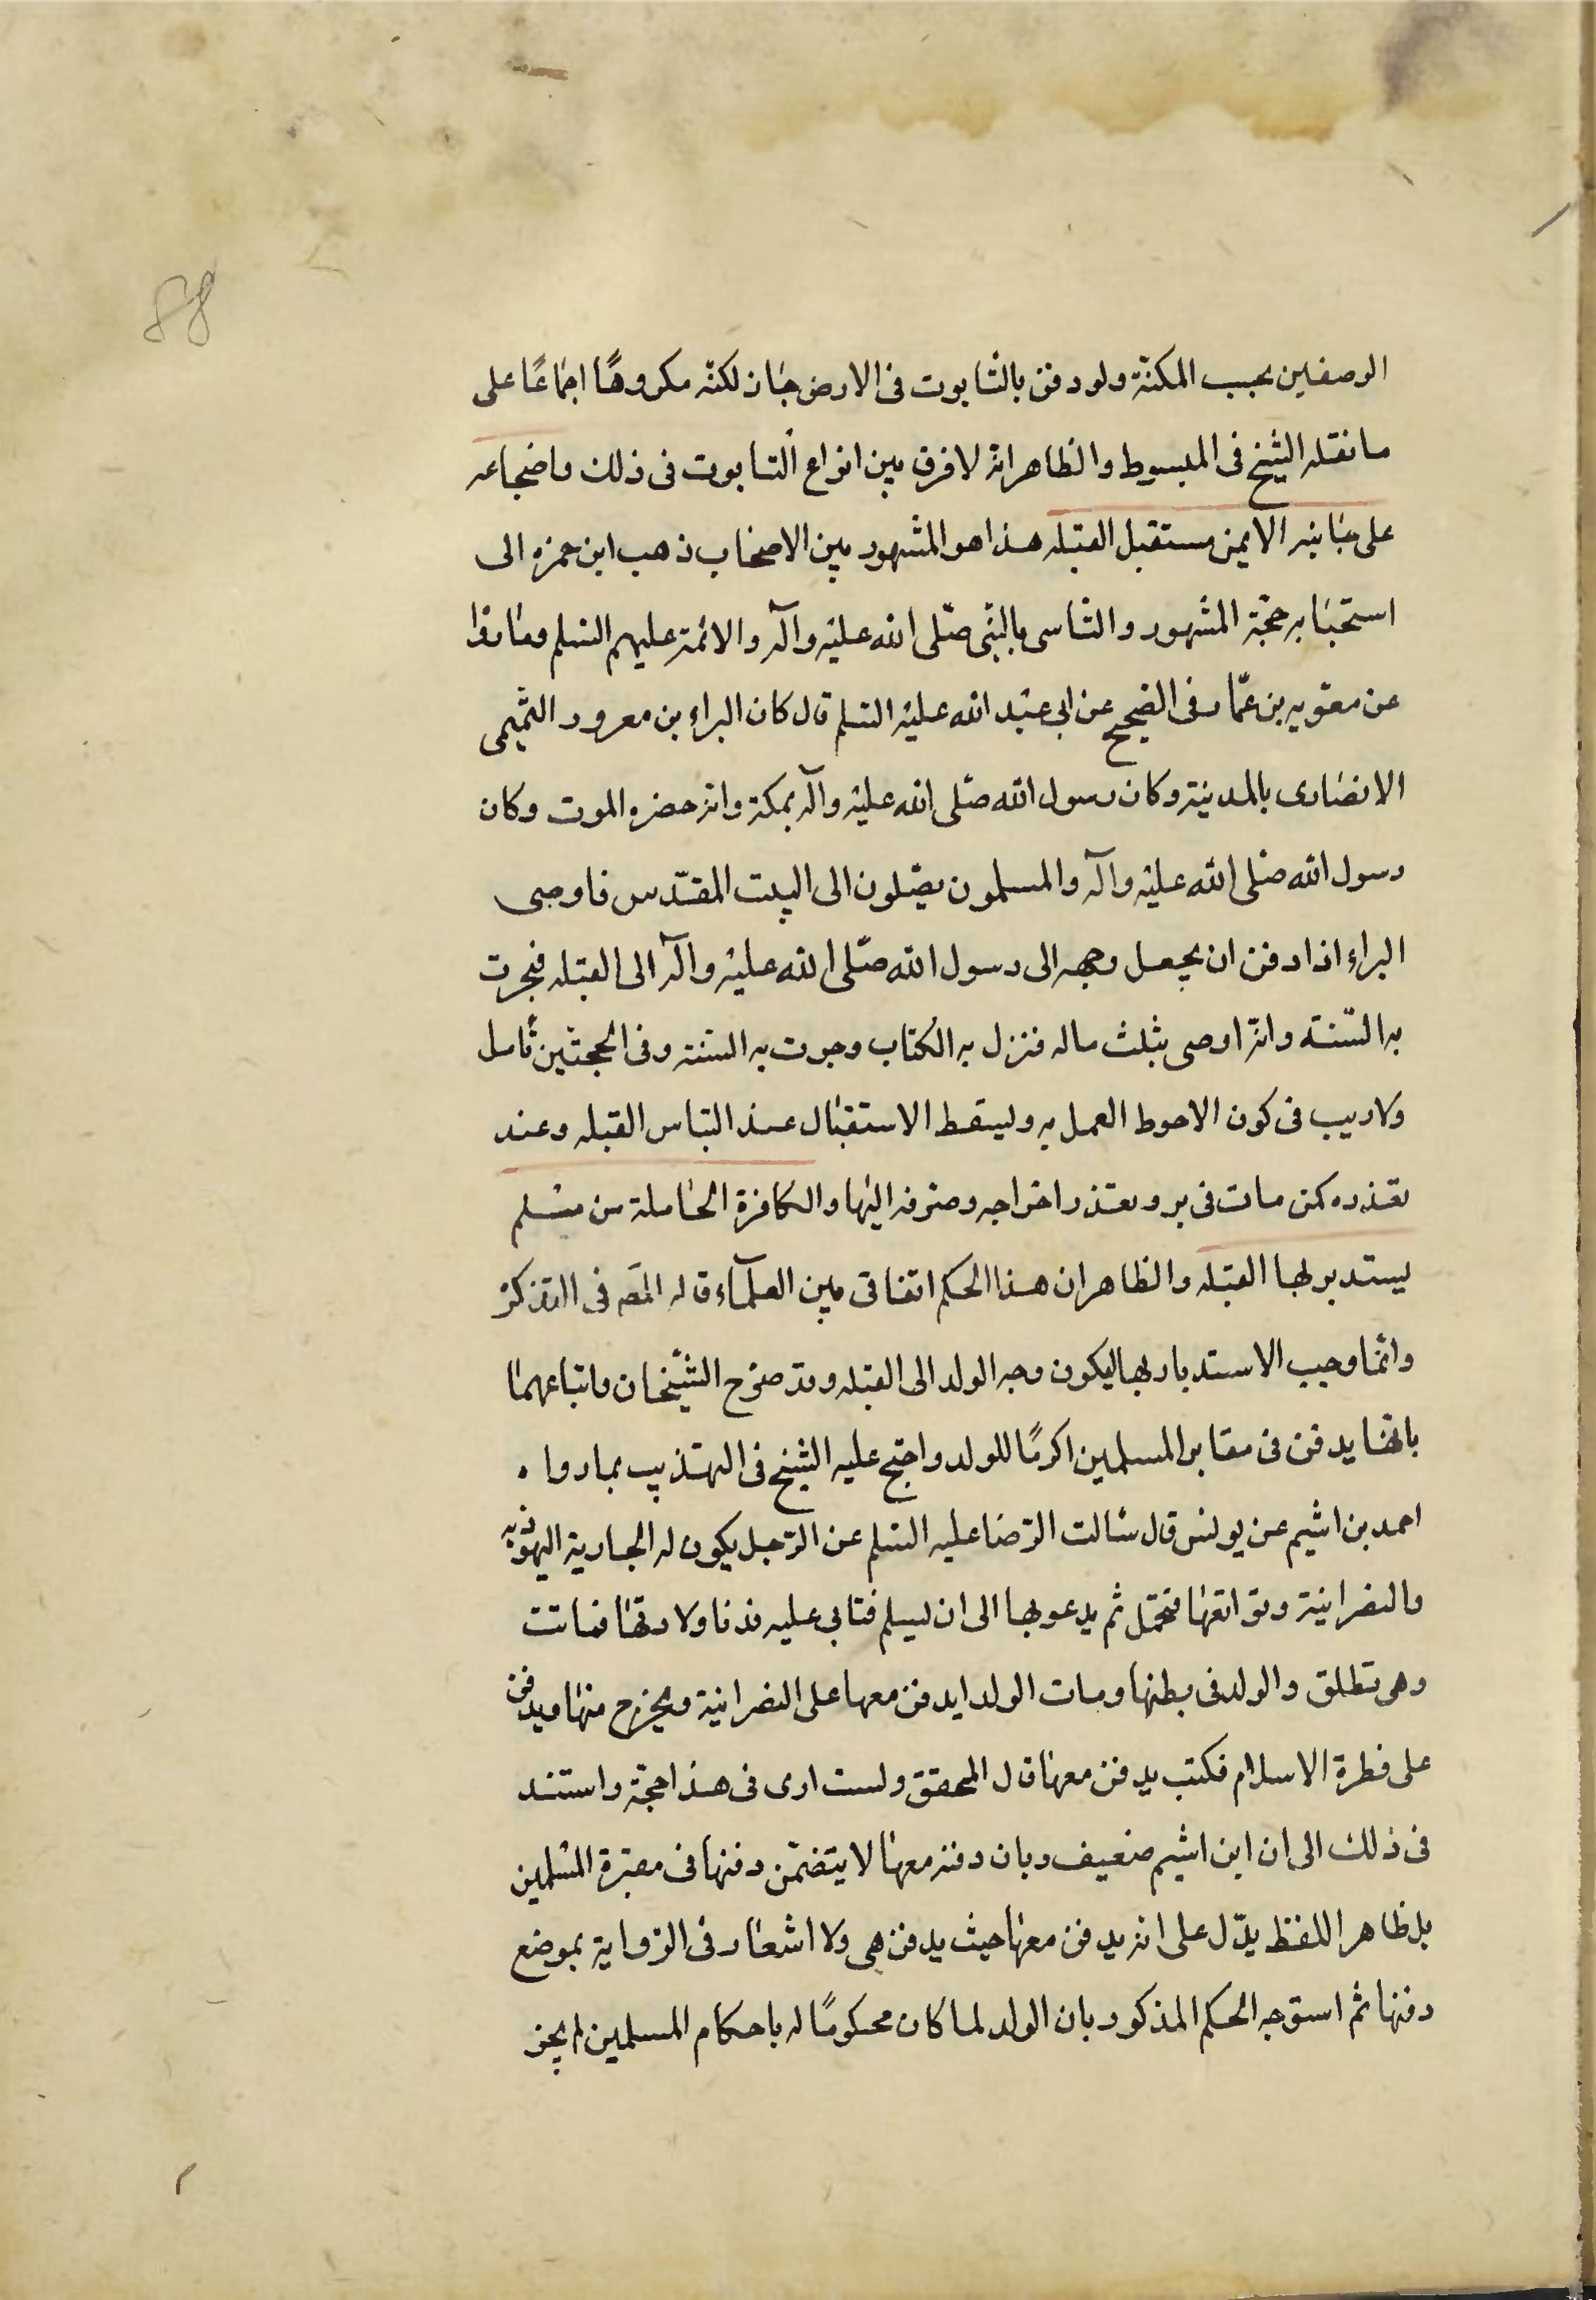 88
الوصفين بحسب المكنة ولو دفن بالتابوت فى الارض جاز لكنّه مكروهًا اجماعًا على
ما نقله الشيخ فى المبسوط والظاهر انه لا فرق بين انواع التابوت فى ذلك واضجاعه
على جانبه الايمن مستقبل القبله هذا هو المشهور بين الاصحاب ذهب ابن حمزه الى
استحبابه حجّة المشهور والتاسى بالنبى صلّى الله عليه وآله والائمة عليهم السلم وما رواه
عن معويه بن عمّار فى الصحيح عن ابى عبد الله عليه السلم قال كان البراء بن معرور التميمى
الانصارى بالمدينة وكان رسول الله صلّى الله عليه وآله بمكة وانه حضره الموت وكان
رسول الله صلى الله عليه وآله والمسلمون يصلّون الى البيت المقدّس فاوصى
البراء اذا دفن ان يجعل وجهه الى رسول الله صلّى الله عليه وآله الى القبله فجرت
به السّنة وانّه اوصى بثلث ماله فنزل به الكتاب وجرت به السنة وفى الحجتين تأمل
ولا ريب فى كون الاحوط العمل به ويسقط الاستقبال عند التباس القبله وعند
تعذره كمن مات فى بر وتعذر اخراجه وصرفه اليها والكافرة الحاملة من مسلم
يستدبر بها القبله والظاهر ان هذا الحكم اتفاقى بين العلمآء قاله المصَ فى التذكرة
وانّما وجب الاستدبار بها ليكون وجه الولد الى القبله وقد صرّح الشيخان واتباعهما
بانها يدفن فى مقابر المسلمين اكرمًا للولد واحتج عليه الشيخ فى التهذيب بما رواه
احمد بن اشيم عن يونس قال سالت الرّضا عليه السلم عن الرّجل يكون له الجارية اليهوديه
والنصرانية وتواقعها فتحمل ثم يدعو بها الى ان يسلم فتابى عليه فدنا ولادتها فماتت
وهى تطلق والولد فى بطنها ومات الولد ايدفن معها على النصرانية ويخرج منها ويدفن
على فطرة الاسلام فكتب يدفن معها قال المحقق ولست ارى فى هذا حجّة واستند
فى ذلك الى ان ابن اشيم ضعيف وبان دفنه معها لا يتضمّن دفنها فى مقبرة المسلمين
بل ظاهر اللفظ يدّل على انه يدفن معها حيث يدفن هى ولا اشعار فى الرّواية بموضع
دفنها ثم استوجه الحكم المذكور بان الولد لما كان محكومًا له باحكام المسلمين لم يجز